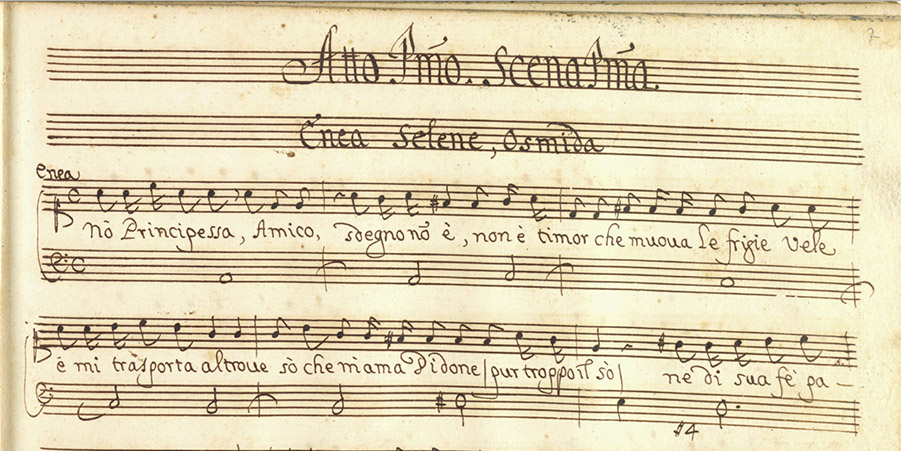 Atto Pmo. Scena Pma.
Enea Selene, Osmida
Enea
Nò Principessa, Amico, sdegno nõ è, non è timor che muova le frigie vele
e mi trasporta altrove sò che m'ama Didone | pur troppo il sò | ne di sua fè pa-
#4